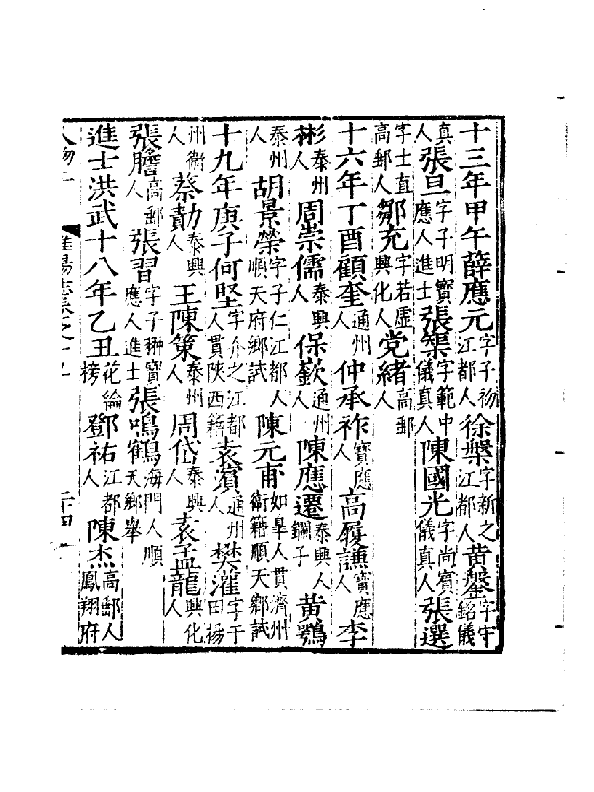 十三年甲午薛應元字子初江都人徐槃字新之江都人黄鎜字守銘儀
真人張旦字子明寳應人進士張築字範中儀真人陳國光字尚賓儀真人張選
字士直高郵人鄒充字若虛興化人党緒高郵人
十六年丁酉顧奎通州人仲承祚寳應人高履謙寳應人李
彬泰州人周崇儒泰興人保欽通州人陳應遷泰興人鋼子黄鶚
泰州人胡景榮字子仁江都人順天府鄉試陳元甫如臯人貫濟州衛籍順天鄉試
十九年庚子何坚字介之江都人貫陝西籍袁濱通州人樊濯字于田揚
州衛人蔡勣泰興人王陳策泰州人周岱泰興人袁孟龍興化人
張膽高郵人張習字子翀寳應人進士張鳴鶴海門人順天鄉舉
進士洪武十八年乙丑花綸榜鄧祐江都人陳杰高郵人鳳翔府
人物十 淮揚志卷之十九 二十四